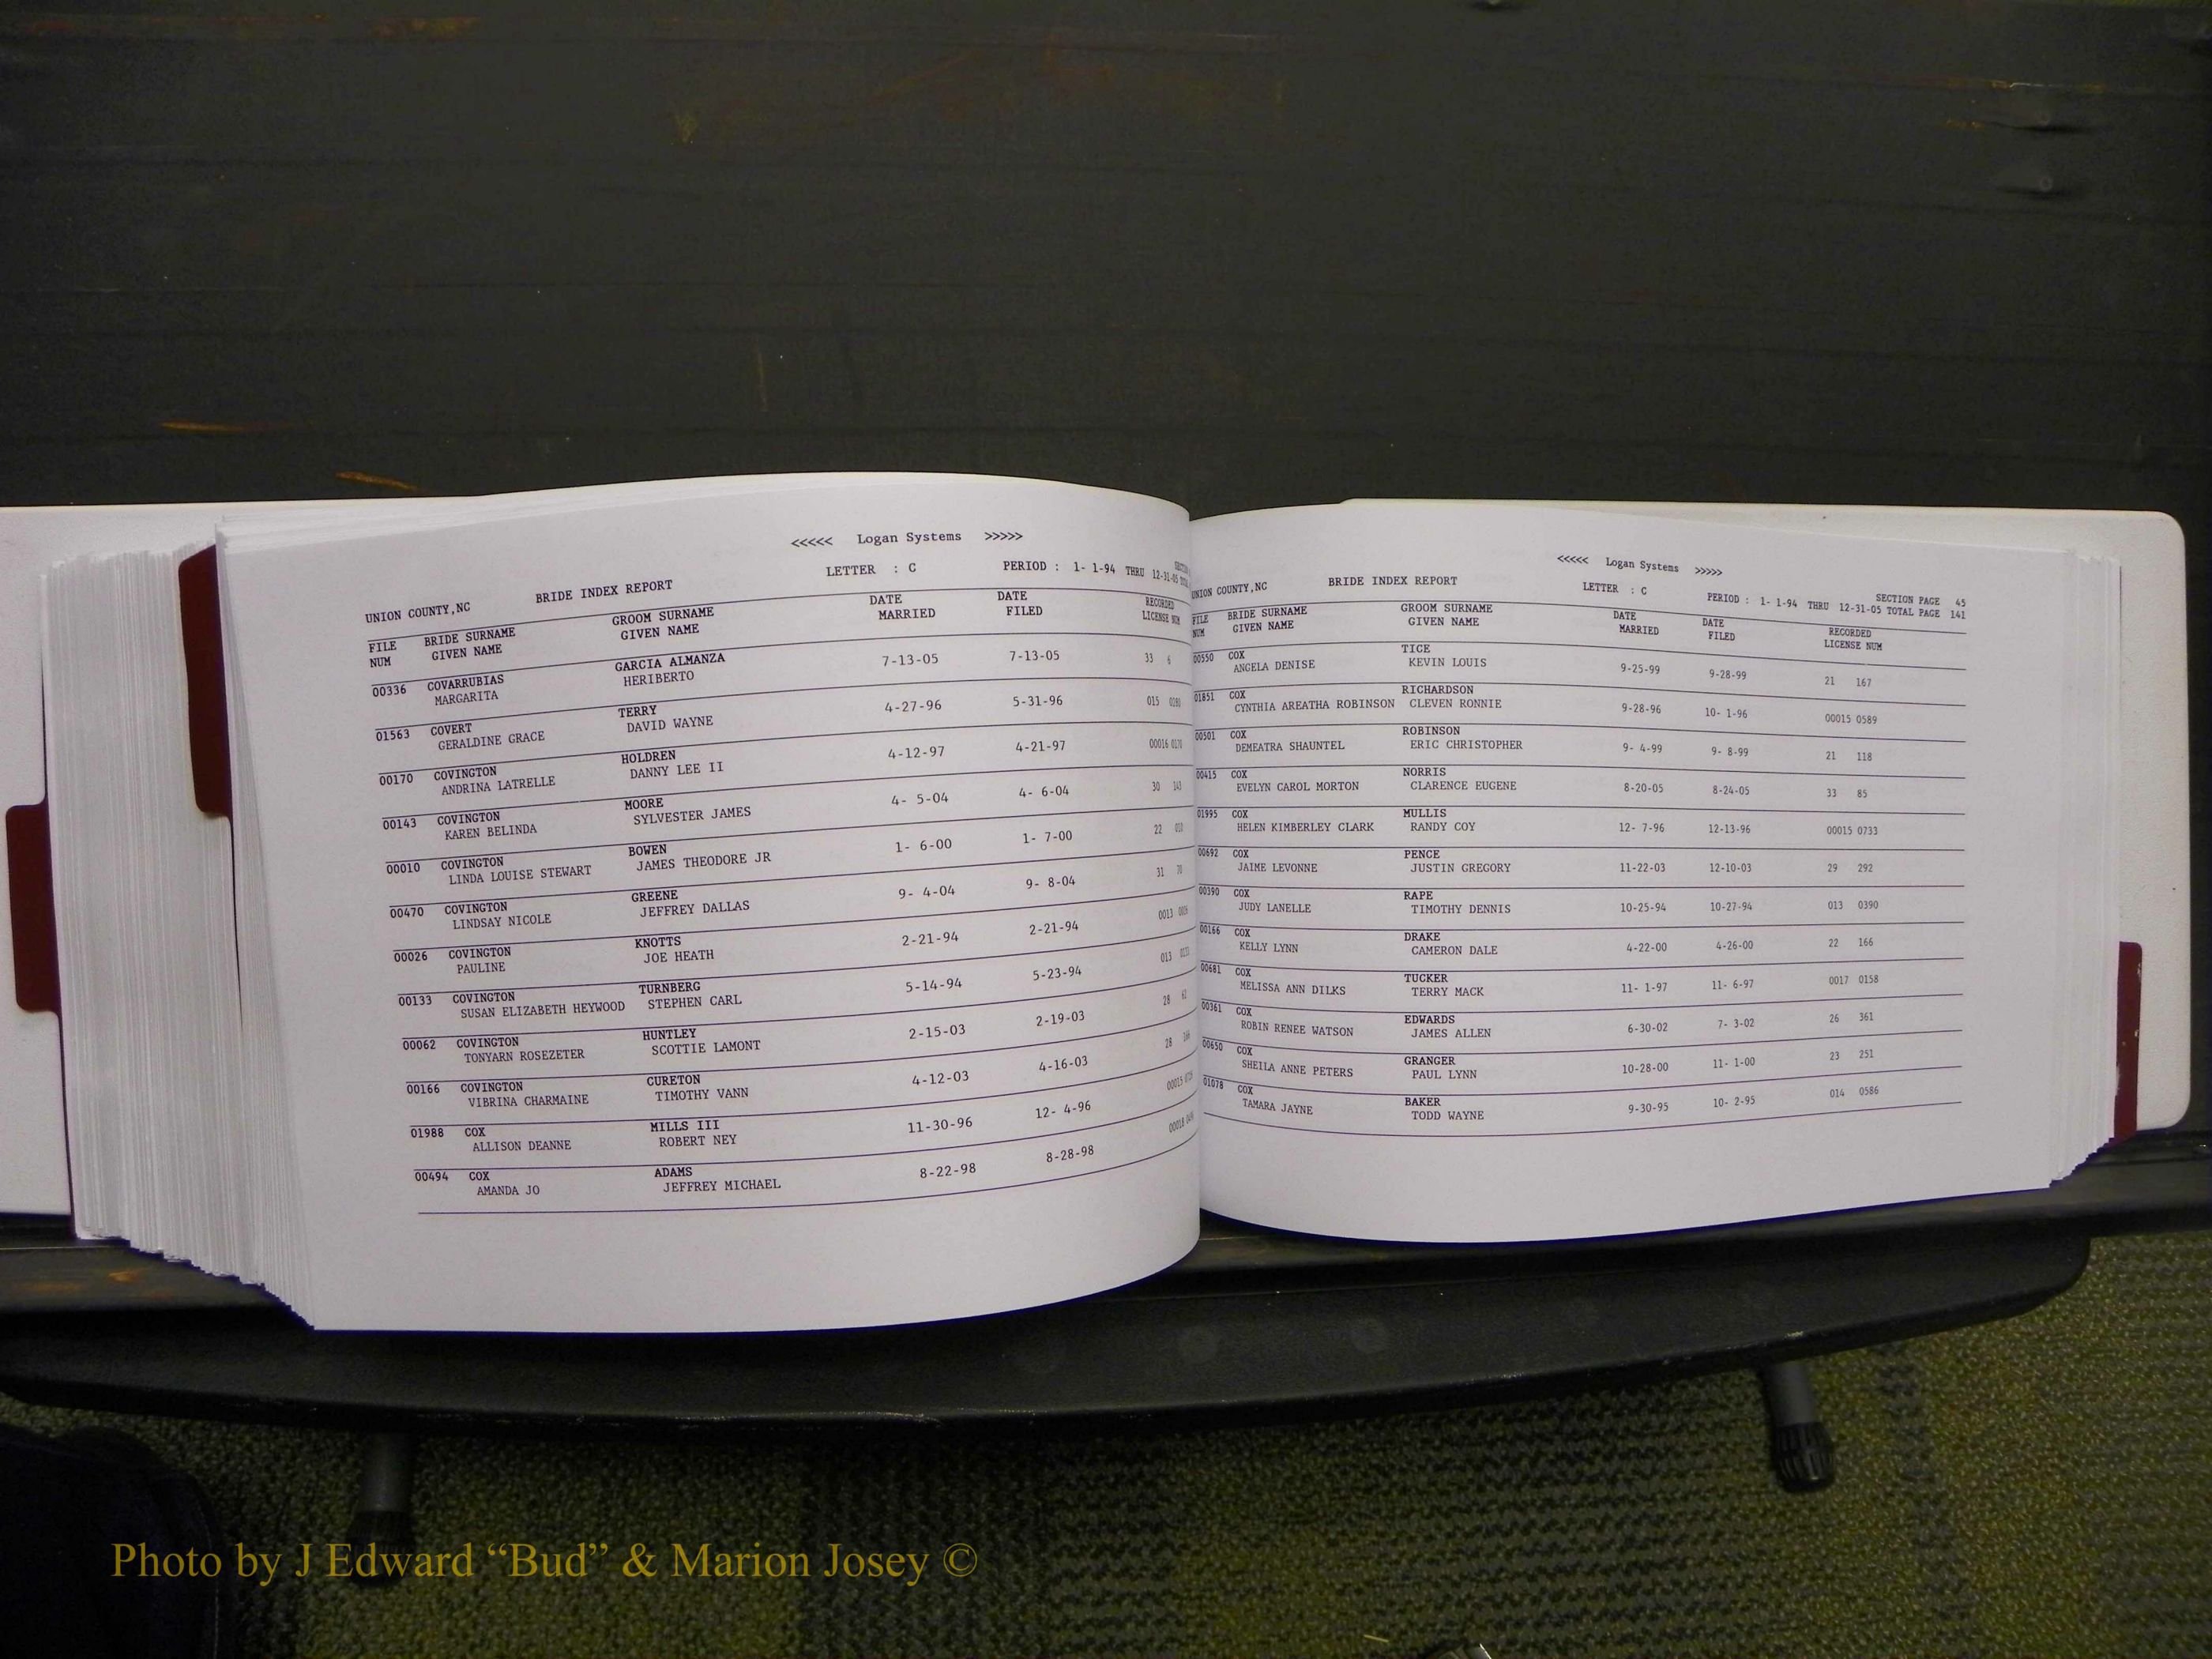 <<<<< Logan Systems >>>>>
UNION COUNTY,NC BRIDE INDEX REPORT LETTER : C PERIOD : 1- 1-94 THRU 12-31-05
FILE BRIDE SURNAME GROOM SURNAME DATE DATE RECORDED
NUM GIVEN NAME GIVEN NAME MARRIED FILED LICENSE NUM
00336 COVARRUBIAS GARCIA ALMANZA 7-13-05 7-13-05 33 6
MARGARITA HERIBERTO
01563 COVERT TERRY 4-27-96 5-31-96 015
GERALDINE GRACE DAVID WAYNE
00170 COVINGTON HOLDREN 4-12-97 4-21-97 00016
ANDRINA LATRELLE DANNY LEE II
00143 COVINGTON MOORE 4- 5-04 4- 6-04 30
KAREN BELINDA SYLVESTER JAMES
00010 COVINGTON BOWEN 1- 6-00 1- 7-00 22
LINDA LOUISE STEWART JAMES THEODORE JR
00470 COVINGTON GREENE 9- 4-04 9- 8-04 31
LINDSAY NICOLE JEFFREY DALLAS
00026 COVINGTON KNOTTS 2-21-94 2-21-94 0013
PAULINE JOE HEATH
00133 COVINGTON TURNBERG 5-14-94 5-23-94 013
SUSAN ELIZABETH HEYWOOD STEPHEN CARL
00062 COVINGTON HUNTLEY 2-15-03 2-19-03 28
TONYARN ROSEZETER SCOTTIE LAMONT
00166 COVINGTON CURETON 4-12-03 4-16-03 28
VIBRINA CHARMAINE TIMOTHY VANN
01988 COX MILLS III 11-30-96 12- 4-96 00015
ALLISON DEANNE ROBERT NEY
00494 COX ADAMS 8-22-98 8-28-98 00018
AMANDA JO JEFFREY MICHAEL
<<<<< Logan Systems >>>>>
SECTION PAGE 45
UNION COUNTY,NC BRIDE INDEX REPORT LETTER : C PERIOD : 1- 1-94 THRU 12-31-05 TOTAL PAGE 141
FILE BRIDE SURNAME GROOM SURNAME DATE DATE RECORDED
NUM GIVEN NAME GIVEN NAME MARRIED FILED LICENSE NUM
00550 COX TICE 9-25-99 9-28-99 21 167
ANGELA DENISE KEVIN LOUIS
01851 COX RICHARDSON 9-28-96 10- 1-96 00015 0589
CYNTHIA AREATHA ROBINSON CLEVEN RONNIE
00501 COX ROBINSON 9- 4-99 9- 8-99 21 118
DEMEATRA SHAUNTEL ERIC CHRISTOPHER
00415 COX NORRIS 8-20-05 8-24-05 33 85
EVELYN CAROL MORTON CLARENCE EUGENE
01995 COX MULLIS 12- 7-96 12-13-96 00015 0733
HELEN KIMBERLEY CLARK RANDY COY
00692 COX PENCE 11-22-03 12-10-03 29 292
JAIME LEVONNE JUSTIN GREGORY
00390 COX RAPE 10-25-94 10-27-94 013 0390
JUDY LANELLE TIMOTHY DENNIS
00166 COX DRAKE 4-22-00 4-26-00 22 166
KELLY LYNN CAMERON DALE
00681 COX TUCKER 11- 1-97 11- 6-97 0017 0158
MELISSA ANN DILKS TERRY MACK
00361 COX EDWARDS 6-30-02 7- 3-02 26 361
ROBIN RENEE WATSON JAMES ALLEN
00650 COX GRANGER 10-28-00 11- 1-00 23 251
SHEILA ANNE PETERS PAUL LYNN
01078 COX BAKER 9-30-95 10- 2-95 014 0586
TAMARA JAYNE TODD WAYNE
Photo by J Edward “Bud” & Marion Josey ©